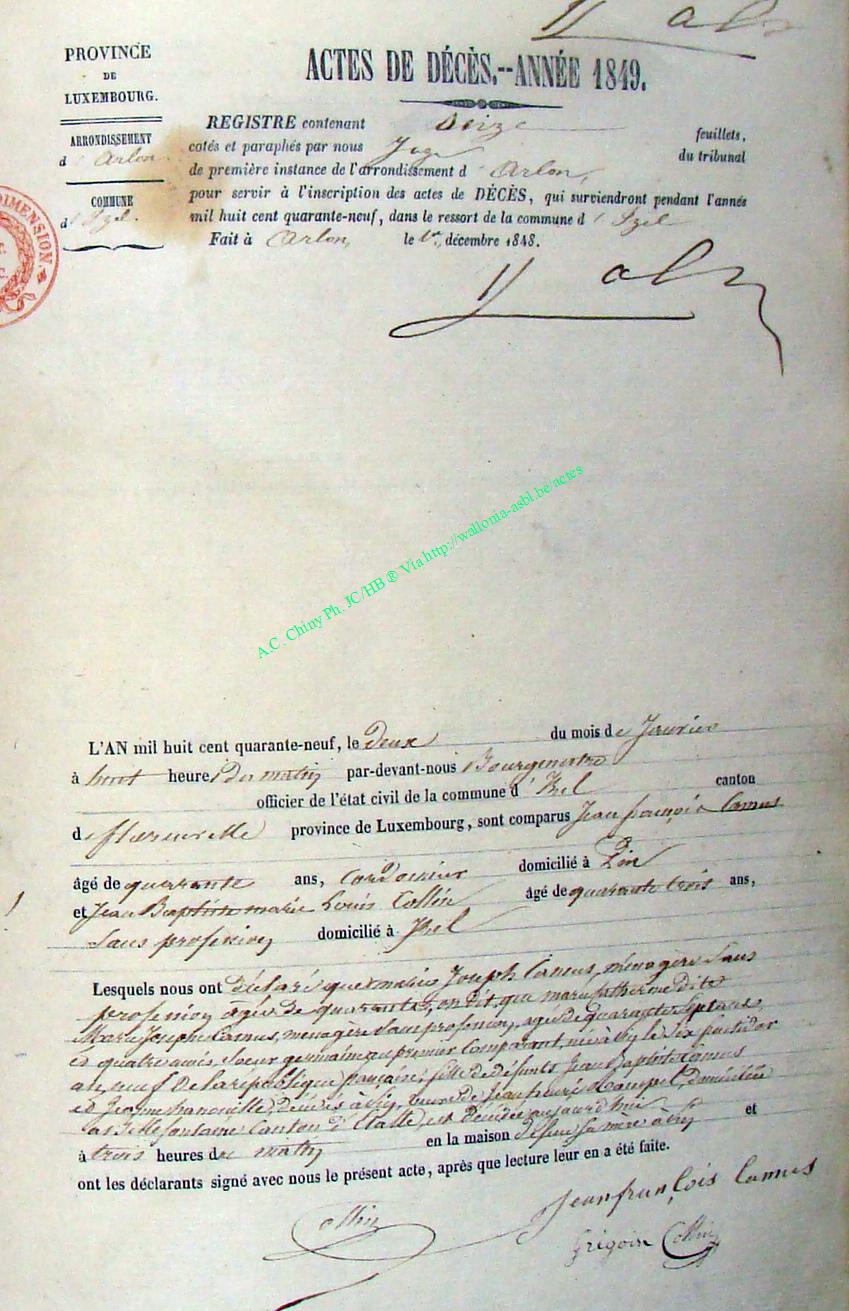 PROVINCE
DE
LUXEMBOURG.
ARRONDISSEMENT
d'Arlon
COMMUNE
d'Izel.
DIMENSION
ACTES DE DÉCÈS.--ANNÉE 1849.
REGISTRE contenant seize feuillets,
cotés et paraphés par nous Juge du tribunal
de première instance de l'arrondissement d'Arlon,
pour servir à l'inscription des actes de DÉCÈS, qui surviendront pendant l'année
mil huit cent quarante-neuf, dans le ressort de la commune d'Izel
Fait à Arlon, le 1er décembre 1848.
A.C. Chiny Ph. JC/HB ® Via http://wallonia-asbl.be/actes
L'AN mil huit cent quarante-neuf, le deux du mois de Janvier
à huit heures du matin par-devant-nous Bourgmestre
officier de l'état civil de la commune d'Izel canton
de florenville province de Luxembourg, sont comparus Jean françois Camus
âgé de quarante ans, Cordonnier domicilié à Pin
et Jean Baptiste marie Louis Collin âgé de quarante trois ans,
Sans profession domicilié à Izel
Lesquels nous ont déclaré que marie Joseph Camus, ménagère Sans
profession agée de quarante, on dit que marie catherine dite
Marie Joseph Camus, ménagère Sans profession, agée de quarante Sept ans
et quatre mois, Soeur germaine au premier Comparant, née à le Six
an neuf De la république française, fille de défunts Jean Baptiste Camus
et Jeanne décédés à veuve de Jean domiciliée
à Bellefontaine Canton d'Etalle, est décédée aujourd'hui
à trois heures du matin en la maison de feu Sa mère à et
ont les déclarants signé avec nous le présent acte, après que lecture leur en a été faite.
Collin
Jean françois Camus
Grégoire Collin